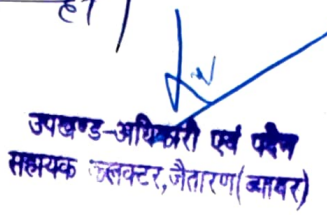 है।
उपखण्ड-अधिकारी एवं पदेन
सहायक कलक्टर, जैतारण(ब्यावर)